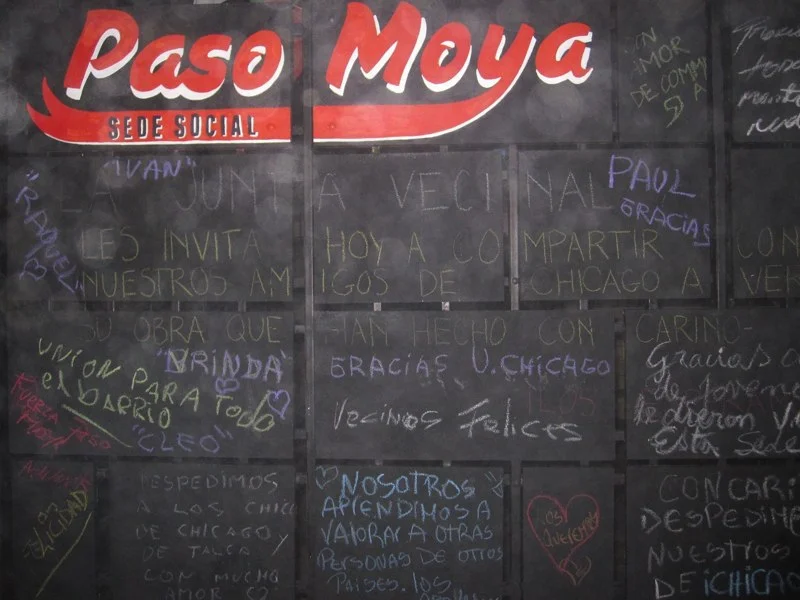 Paso Moya
SEDE SOCIAL
"IVAN"
"RAQUEL"
LA JUNTA VECINAL
LES INVITA HOY A COMPARTIR CON
NUESTROS AMIGOS DE CHICAGO A VER
SU OBRA QUE HAN HECHO CON CARIÑO-
PAUL
GRACIAS
AMOR
DE
UNION PARA TODO
el BARRIO
"BRINDA"
"CLEO"
FUERZA PASO
MOYA
GRACIAS U. CHICAGO
Vecinos Felices
Gracias a
de jovene
Esta Sede
FELICIDAD
DESPEDIMOS
A LOS CHICO
DE CHICAGO Y
DE TALCA Y
CON MUCHO
AMOR
NOSOTROS
APRENDIMOS A
VALORAR A OTRAS
PERSONAS DE OTROS
PAISES. LOS
LOS
QUEREMOS
CON CARI
DESPEDIM
NUESTROS
DE CHICAG